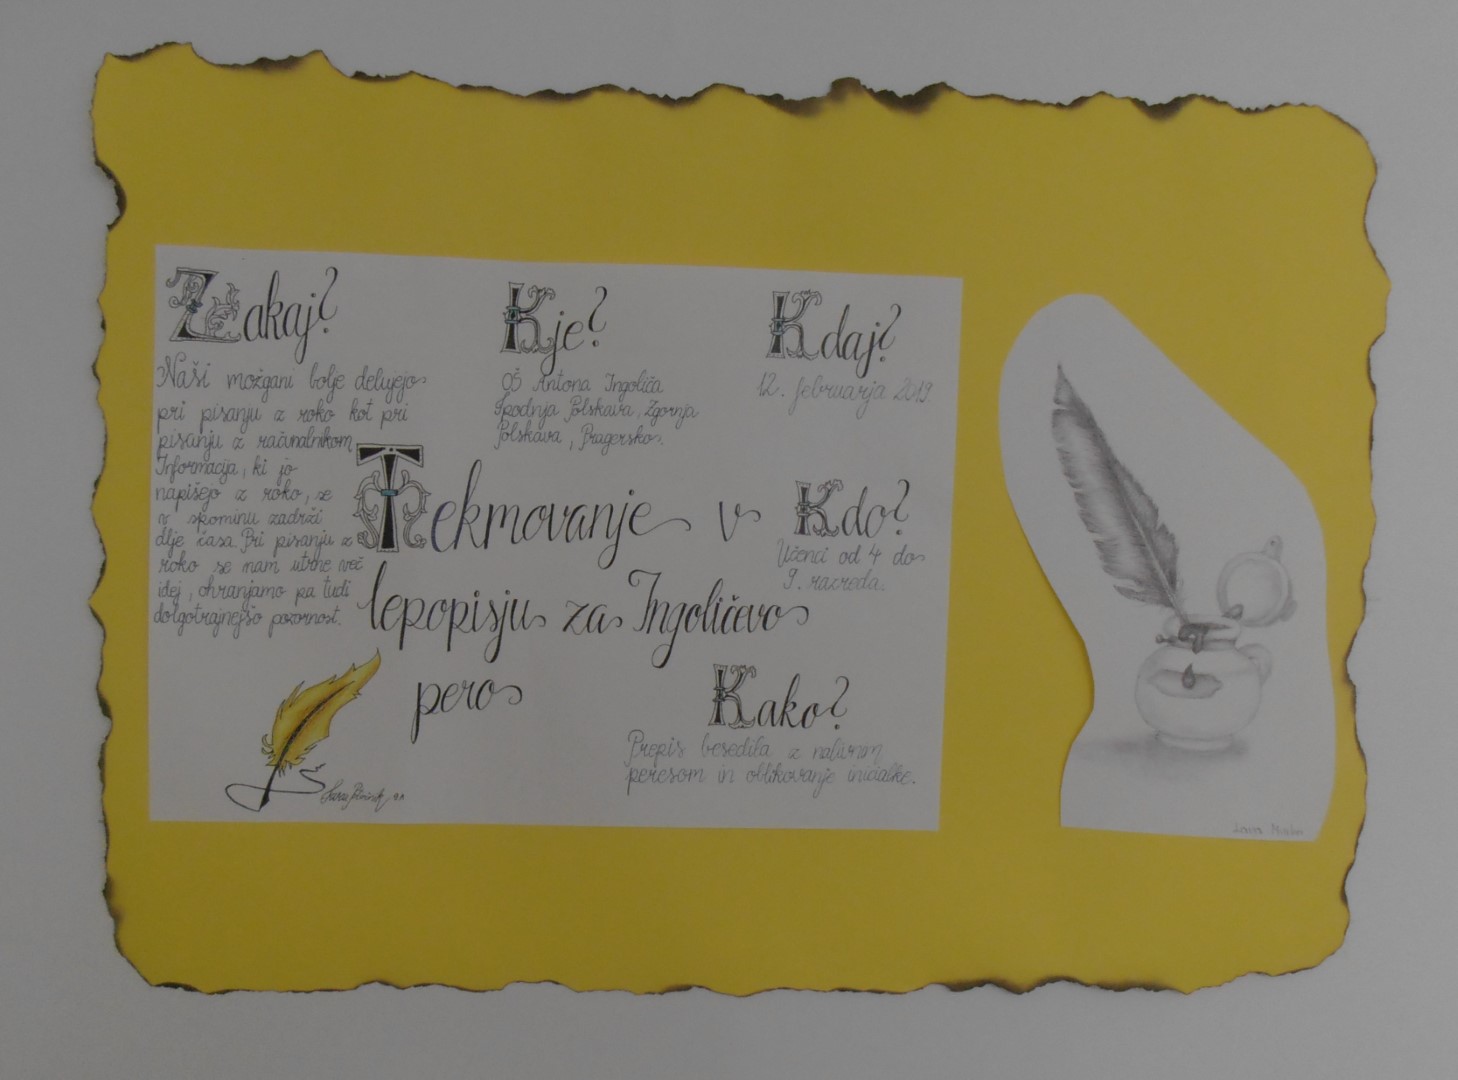 Zakaj?
Naši možgani bolje delujejo
pri pisanju z roko kot pri
pisanju z računalnikom.
Informacija, ki jo
napišejo z roko, se
v spominu zadrži
dlje časa. Pri pisanju z
roko se nam utrne več
idej, ohranjamo pa tudi
dolgotrajnejšo pozornost.
Kje?
OŠ Antona Ingoliča
Spodnja Polskava, Zgornja
Polskava, Pragersko.
Kdaj?
12. februarja 2019
Tekmovanje v
lepopisju za Ingoličevo
pero
Kdo?
Učenci od 4 do
9. razreda.
Kako?
Prepis besedila z nalivnim
peresom in oblikovanje inicialke.